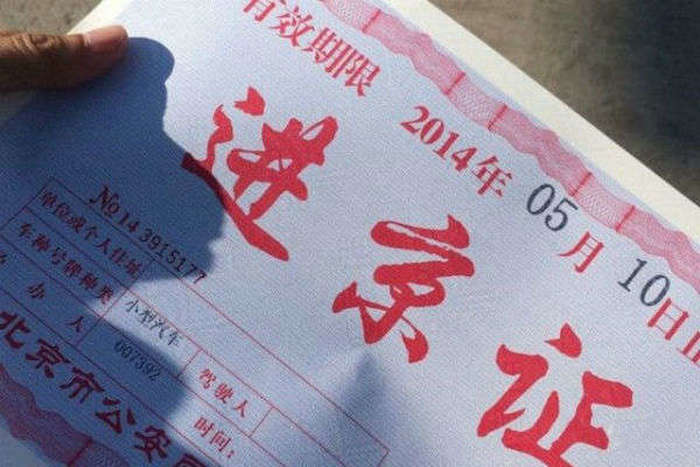 有效期限 2014年 05月 10日止
进京证
No 14 3915177
单位或个人住址
车种号牌种类 小型汽车 驾驶人
办人 007392 时间:
北京市公安